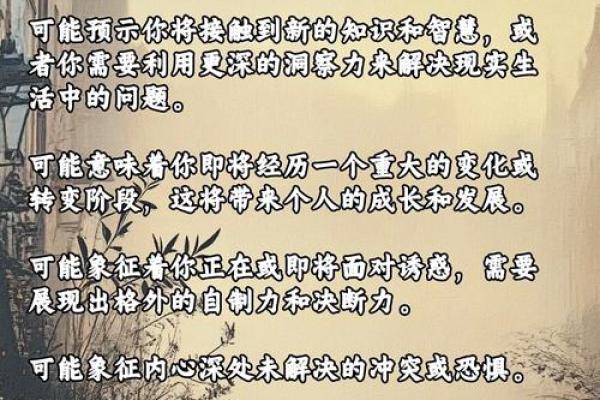 可能预示你将接触到新的知识和智慧，或
者你需要利用更深的洞察力来解决现实生
活中的问题。
可能意味着你即将经历一个重大的变化或
转变阶段，这将带来个人的成长和发展。
可能象征着你正在或即将面对诱惑，需要
展现出格外的自制力和决断力。
可能象征内心深处未解决的冲突或恐惧。